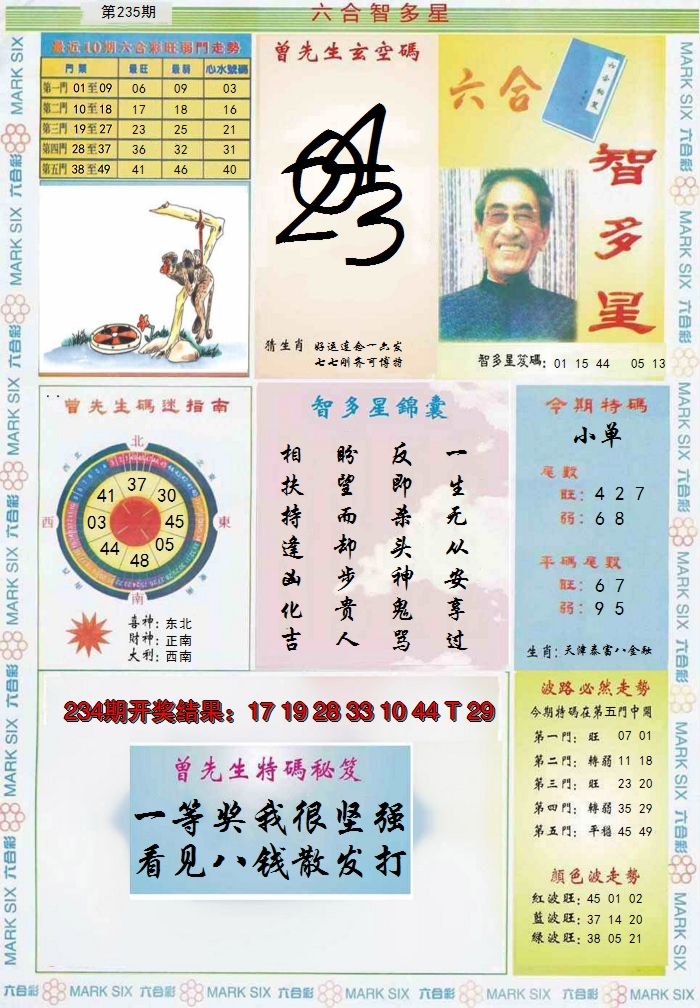 第235期
六合智多星
最近10期六合彩旺弱門走勢
門類 最旺 最弱 心水號碼
第一門 01至09 06 09 03
第二門 10至18 17 18 16
第三門 19至27 23 25 21
第四門 28至37 36 32 31
第五門 38至49 41 46 40
曾先生玄空碼
猜生肖
好运连合一六发
七七刚齐可博特
六合
智多星
智多星笈碼: 01 15 44 05 13
曾先生碼迷指南
北
西
東
南
37
30
45
05
48
44
03
41
喜神: 东北
財神: 正南
大利: 西南
智多星錦囊
一生无从安享过
反即杀头神鬼骂
盼望而却步贵人
相扶持逢凶化吉
今期特碼
小单
尾數
旺: 4 2 7
弱: 6 8
平碼尾數
旺: 6 7
弱: 9 5
生肖: 天津泰富八金融
234期开奖结果: 17 19 28 33 10 44 T 29
曾先生特碼秘笈
一等奖我很坚强
看见八钱散发打
波路必然走勢
今期特碼在第五門中開
第一門: 旺 07 01
第二門: 轉弱 11 18
第三門: 旺 23 20
第四門: 轉弱 35 29
第五門: 平穩 45 49
顔色波走勢
紅波旺: 45 01 02
藍波旺: 37 14 20
綠波旺: 38 05 21
MARK SIX 六合彩 MARK SIX 六合彩 MARK SIX 六合彩 MARK SIX 六合彩 MARK SIX 六合彩